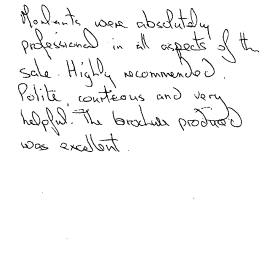 were absolutely
professional in all aspects of the
sale. Highly recommended.
Polite, courteous and very
helpful. The brochure produced
was excellent.